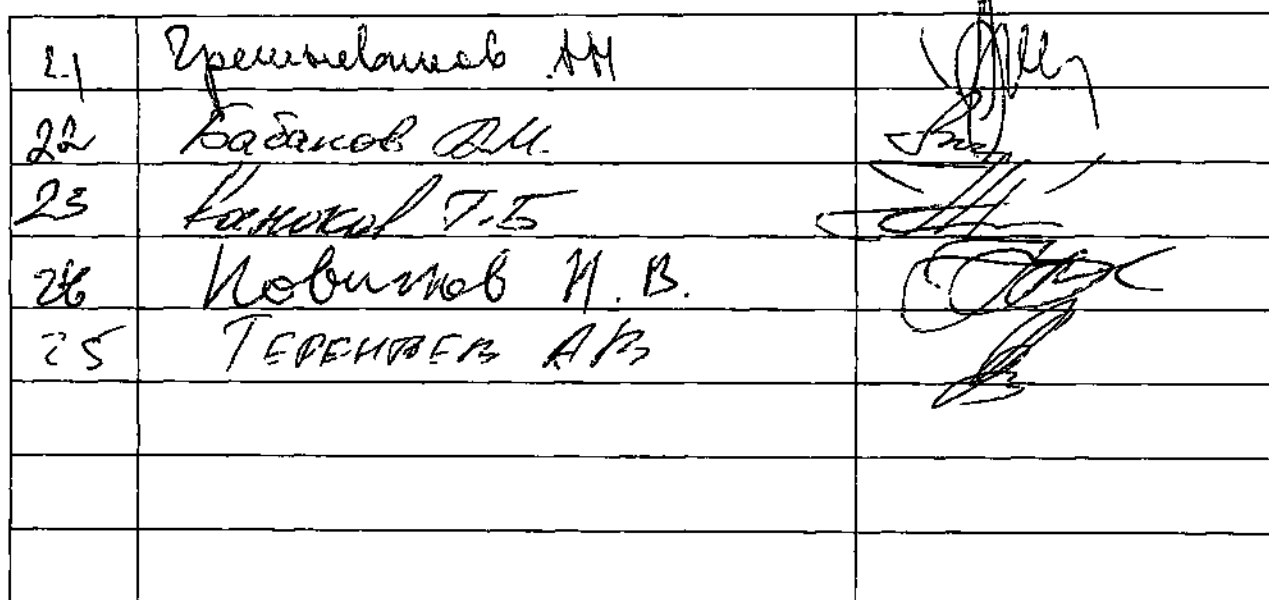 21 Грешневиков АН
22 Бабаков А.М.
23 Каноков Т.Б
24 Новичков Н.В.
25 ТЕРЕНТЬЕВ АВ